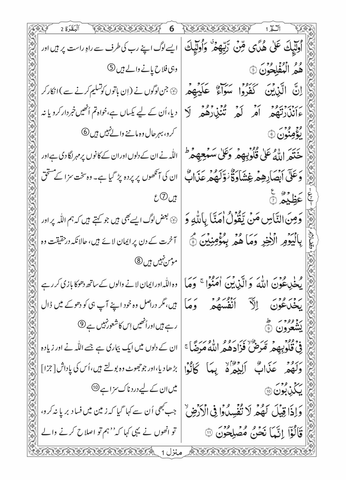 البقرة ٢
6
الٓمّٓ ١
اُولٰٓئِكَ عَلٰى هُدًى مِّنْ رَّبِّهِمْ وَاُولٰٓئِكَ
هُمُ الْمُفْلِحُوْنَ
اِنَّ الَّذِيْنَ كَفَرُوْا سَوَآءٌ عَلَيْهِمْ
ءَاَنْذَرْتَهُمْ اَمْ لَمْ تُنْذِرْهُمْ لَا
يُؤْمِنُوْنَ
خَتَمَ اللّٰهُ عَلٰى قُلُوْبِهِمْ وَعَلٰى سَمْعِهِمْ ؕ
وَعَلٰٓى اَبْصَارِهِمْ غِشَاوَةٌ وَّلَهُمْ عَذَابٌ
عَظِيْمٌ
وَمِنَ النَّاسِ مَنْ يَّقُوْلُ اٰمَنَّا بِاللّٰهِ وَ
بِالْيَوْمِ الْاٰخِرِ وَمَا هُمْ بِمُؤْمِنِيْنَ
يُخٰدِعُوْنَ اللّٰهَ وَالَّذِيْنَ اٰمَنُوْا ۚ وَمَا
يَخْدَعُوْنَ اِلَّآ اَنْفُسَهُمْ وَمَا
يَشْعُرُوْنَ
فِيْ قُلُوْبِهِمْ مَّرَضٌ ۙ فَزَادَهُمُ اللّٰهُ مَرَضًا ۚ
وَلَهُمْ عَذَابٌ اَلِيْمٌۢ بِمَا كَانُوْا
يَكْذِبُوْنَ
وَاِذَا قِيْلَ لَهُمْ لَا تُفْسِدُوْا فِي الْاَرْضِ ۙ
قَالُوْٓا اِنَّمَا نَحْنُ مُصْلِحُوْنَ
ایسے لوگ اپنے رب کی طرف سے راہِ راست پر ہیں اور
وہی فلاح پانے والے ہیں ⑤
جن لوگوں نے (ان باتوں کو تسلیم کرنے سے) انکار کر
دیا، اُن کے لیے یکساں ہے، خواہ تم انھیں خبردار کرو یا نہ
کرو، بہرحال وہ ماننے والے نہیں ہیں ⑥
اللہ نے ان کے دلوں اور ان کے کانوں پر مہر لگا دی ہے اور
ان کی آنکھوں پر پردہ پڑ گیا ہے۔ وہ سخت سزا کے مستحق
ہیں ⑦ ع
بعض لوگ ایسے بھی ہیں جو کہتے ہیں کہ ہم اللہ پر اور
آخرت کے دن پر ایمان لائے ہیں، حالانکہ درحقیقت وہ
مومن نہیں ہیں ⑧
وہ اللہ اور ایمان لانے والوں کے ساتھ دھوکا بازی کر رہے
ہیں، مگر دراصل وہ خود اپنے آپ ہی کو دھوکے میں ڈال
رہے ہیں اور انھیں اس کا شعور نہیں ہے ⑨
ان کے دلوں میں ایک بیماری ہے جسے اللہ نے اور زیادہ
بڑھا دیا، اور جو جھوٹ وہ بولتے ہیں، اُس کی پاداش [جزا]
میں ان کے لیے دردناک سزا ہے ⑩
جب کبھی اُن سے کہا گیا کہ زمین میں فساد برپا نہ کرو،
تو انھوں نے یہی کہا کہ ”ہم تو اصلاح کرنے والے
منزل ١